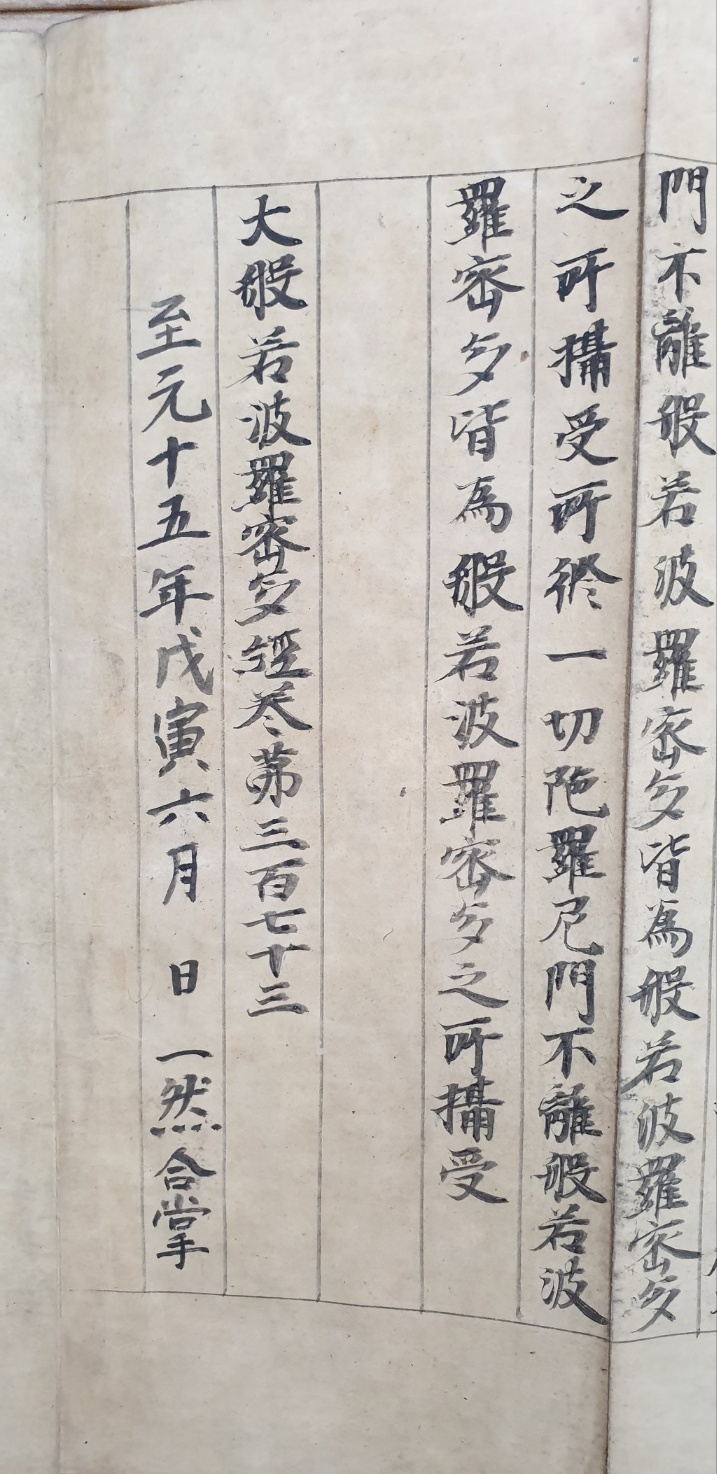 門不離般若波羅密多皆為般若波羅密多
之所攝受所修一切陁羅尼門不離般若波
羅密多皆為般若波羅密多之所攝受
大般若波羅密多經卷第三百七十三
至元十五年戊寅六月 日 一然合掌